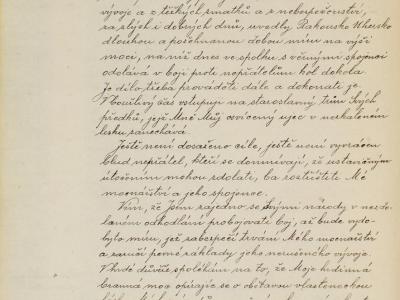 vývoje a z těžkých zmatků a z nebezpečenství,
za zlých i dobrých dnů, uvedly Rakousko Uhersko
dlouhou a požehnanou dobou míru na výši
moci, na níž dnes ve spolku s věrnými spojenci
odolává v boji proti nepřátelům kol dokola.
Je dílo třeba prováděti dále a dokonati je.
V bouřlivý čas vstupuji na staroslavný trůn Svých
předků, jejž Mně Můj osvícený ujec v nezkaleném
lesku zanechává.
Ještě není dosaženo cíle, ještě není vyvrácen
blud nepřátel, kteří se domnívají, že ustavičným
útočením mohou zdolati, ba roztříštiti Mé
mocnářství a jeho spojence.
Vím, že Jsem zajedno se Svými národy v nezdo-
laném odhodlání probojovati boj, až bude vydo-
byto míru, jež zabezpečí trvání Mého mocnářství
a zaručí pevné základy jeho nerušeného vývoje.
V hrdé důvěře spoléhám na to, že Moje hrdinná
branná moc opírajíc se o obětavou vlasteneckou